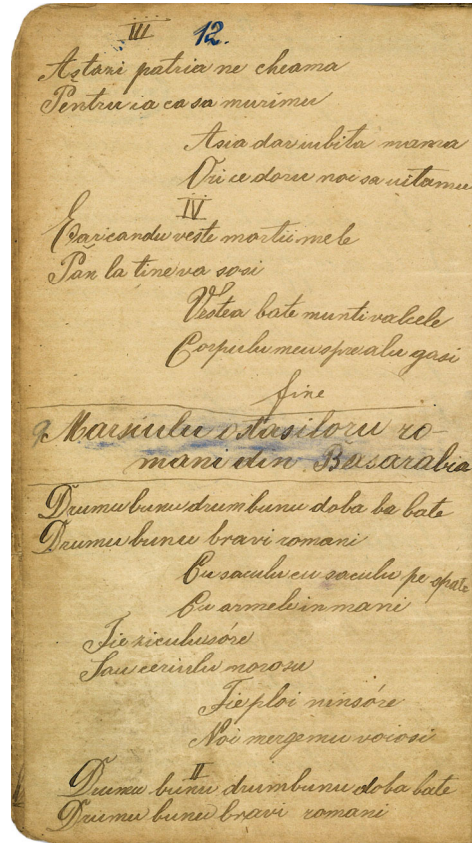 III 12.
Astazi patria ne cheama
Pentru ia ca sa murimu
Asia dar iubita mama
Ori ce doru noi sa uitamu
IV
Ear candu veste mortii mele
Pan la tine va sosi
Vestea bate munti valcele
Corpulu meu spre alu gasi
fine
9 Marsiulu ostasiloru ro-
mani din Basarabia
Drumu bunu drum bunu doba ba bate
Drumu bunu bravi romani
Cu saculu cu saculu pe spate
Cu armele in mani
Fie ziculu sóre
Sau ceriulu norosu
Fie ploi ninsóre
Noi mergemu voiosi
II
Drumu bunu drum bunu doba bate
Drumu bunu bravi romani